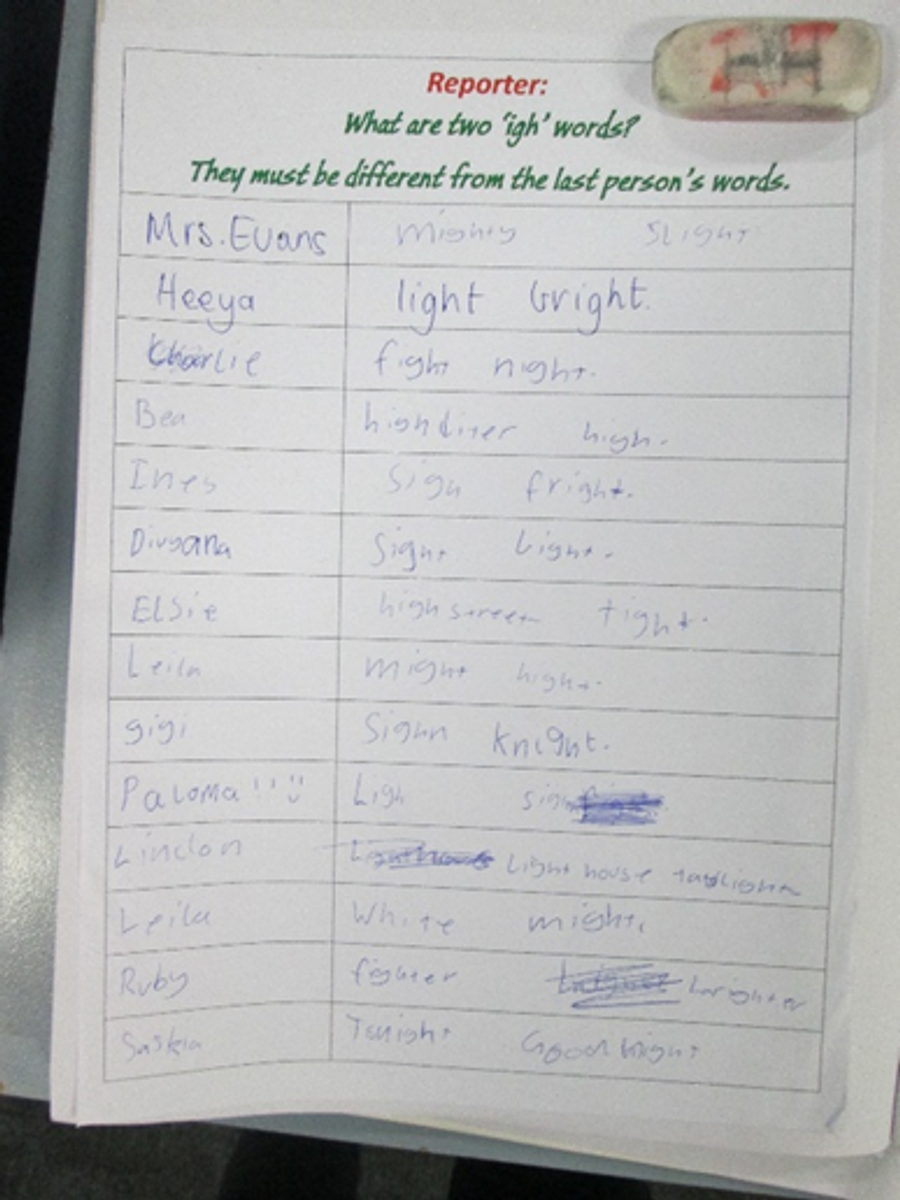 Reporter:
What are two 'igh' words?
They must be different from the last person's words.
Mrs. Evans mighty SLight
Heeya light bright.
Charlie fight night.
Bea highdiver high.
Ines Sigh fright.
Divyana Sight Light.
ELSie highstreet tight.
Leila might high.
gigi Sighn knight.
PaLoma!! Ligh sigh
Lindon Light house
Leila White might.
Ruby fighter brighter
Saskia Tonight Goodnight